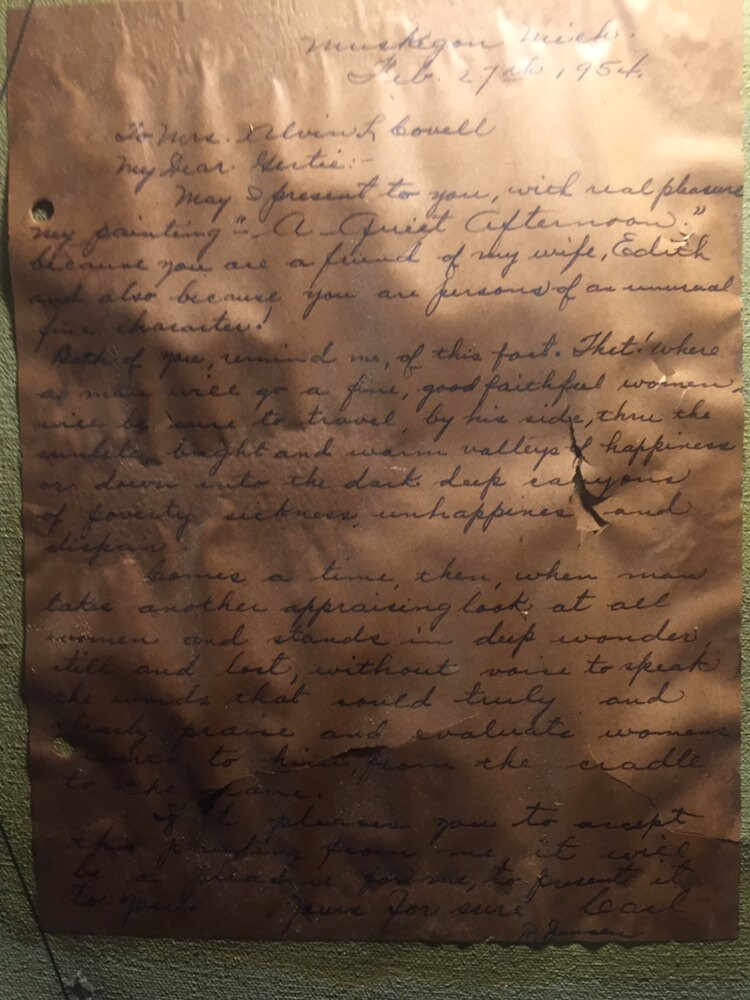 Muskegon Mich.
Feb. 27th 1954.
To Mrs. Alvin L Covell
My Dear Gertie:-
May I present to you, with real pleasure
my painting "A Quiet Afternoon."
because you are a friend of my wife, Edith
and also because you are persons of an unusual
fine character!
Both of you, remind me, of this fact. That! where
a man will go a fine, good faithful women
will be sure to travel, by his side, thru the
sunlite, bright and warm valleys of happiness
or down into the dark deep canyons
of poverty sickness, unhappiness and
dispair.
Comes a time, then, when man
takes another appraising look at all
women and stands in deep wonder,
still and lost, without voice to speak
the words that could truly and
praise and evaluate womens
to him, from the cradle
to the grave.
If it pleases you to accept
this painting from me, it will
be a pleasure for me, to present it
to you. Yours for sure Carl
R. Jensen